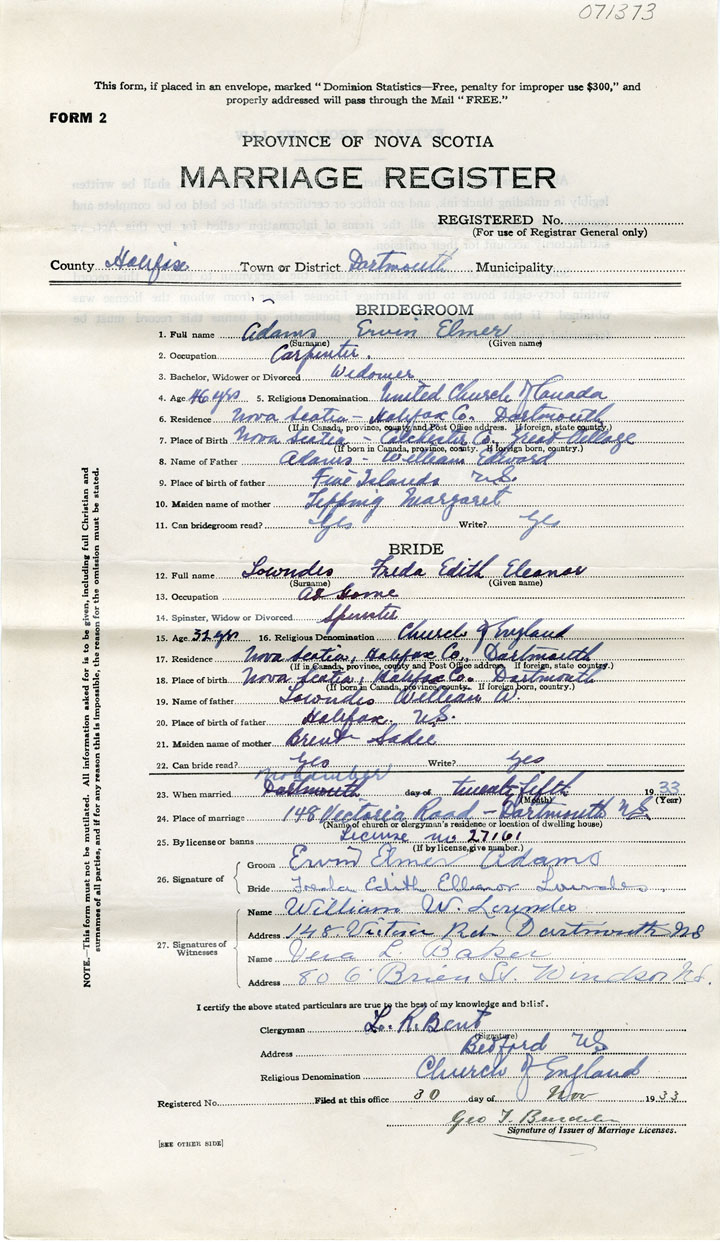 071373
This form, if placed in an envelope, marked "Dominion Statistics—Free, penalty for improper use $300," and
properly addressed will pass through the Mail "FREE."
FORM 2
PROVINCE OF NOVA SCOTIA
MARRIAGE REGISTER
REGISTERED No.
(For use of Registrar General only)
County Halifax Town or District Dartmouth Municipality
BRIDEGROOM
1. Full name Adams Ervin Elmer
(Surname) (Given name)
2. Occupation Carpenter.
3. Bachelor, Widower or Divorced Widower
4. Age 46 yrs 5. Religious Denomination United Church of Canada
6. Residence Nova Scotia - Halifax Co. Dartmouth
(If in Canada, province, county and Post Office address. If foreign, state country.)
7. Place of Birth Nova Scotia - Colchester Co., Great Village
(If born in Canada, province, county. If foreign born, country.)
8. Name of Father Adams - William Edward
9. Place of birth of father Five Islands N.S.
10. Maiden name of mother Margaret
11. Can bridegroom read? Yes Write? Yes
BRIDE
12. Full name Lowndes Freda Edith Eleanor
(Surname) (Given name)
13. Occupation At Home
14. Spinster, Widow or Divorced Spinster
15. Age 32 yrs 16. Religious Denomination Church of England
17. Residence Nova Scotia, Halifax Co., Dartmouth
(If in Canada, province, county and Post Office address. If foreign, state country.)
18. Place of birth Nova Scotia, Halifax Co. Dartmouth
(If born in Canada, province, county. If foreign born, country.)
19. Name of father Lowndes William W.
20. Place of birth of father Halifax. N.S.
21. Maiden name of mother Brent Sadie
22. Can bride read? Yes Write? Yes
November
23. When married Dartmouth day of twenty fifth 1933
(Month) (Year)
24. Place of marriage 148 Victoria Road - Dartmouth NS
(Name of church or clergyman's residence or location of dwelling house)
25. By license or banns License no 27161
(If by license, give number.)
26. Signature of
Groom Ervin Elmer Adams
Bride Freda Edith Elleanor Lowndes
27. Signatures of Witnesses
Name William W. Lowndes
Address 148 Victoria Rd. Dartmouth NS
Name Vera L Baker
Address 80 O'Brien St. Windsor N.S.
I certify the above stated particulars are true to the best of my knowledge and belief.
Clergyman L. R. Bent
(Signature)
Address Bedford NS
Religious Denomination Church of England
Registered No. Filed at this office 30 day of Nov 1933
Geo T.
Signature of Issuer of Marriage Licenses.
[SEE OTHER SIDE]
NOTE.—This form must not be mutilated. All information asked for is to be given, including full Christian and
surnames of all parties, and if for any reason this is impossible, the reason for the omission must be stated.